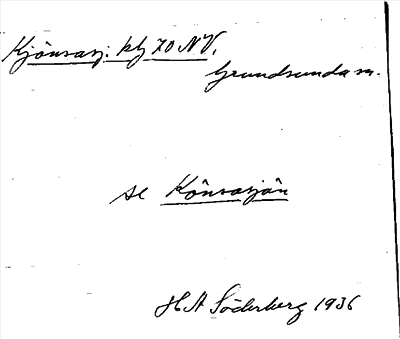 Kjönsasj. kbl 70 NV.
Grundsunda sn.
se Könsasjön
H A Söderberg 1936